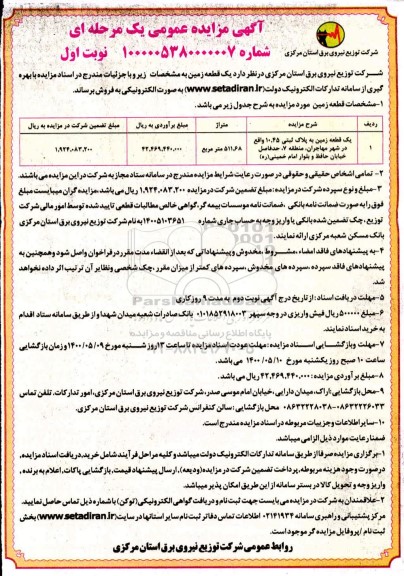 آگهی مزایده عمومی یک مرحله ای
شماره ۱۰۰۰۰۰۵۳۸۰۰۰۰۰۰۷ نوبت اول
شرکت توزیع نیروی برق استان مرکزی
شرکت توزیع نیروی برق استان مرکزی در نظر دارد یک قطعه زمین به مشخصات زیر و با جزئیات مندرج در اسناد مزایده با بهره
گیری از سامانه تدارکات الکترونیک دولت (www.setadiran.ir) به صورت الکترونیکی به فروش برساند.
۱-مشخصات قطعه زمین مورد مزایده به شرح جدول زیر می باشد.
ردیف شرح مزایده متراژ مبلغ برآوردی به ریال مبلغ تضمین شرکت در مزایده به ریال
۱ یک قطعه زمین به پلاک ثبتی ۱۰.۴۵ واقع در شهر مهاجران، منطقه ۷، حدفاصل خیابان حافظ و بلوار امام خمینی(ره) ۵۱۱.۶۸ متر مربع ۴۲,۴۶۹,۴۴۰,۰۰۰ ۱,۹۲۴,۰۸۳,۲۰۰
۲- تمامی اشخاص حقیقی و حقوقی در صورت رعایت شرایط مزایده مندرج در سامانه ستاد مجاز به شرکت در این مزایده می باشند.
۳-مبلغ و نوع سپرده شرکت در مزایده: مبلغ تضمین شرکت در مزایده ۱,۹۲۴,۰۸۳,۲۰۰ ریال می باشد، مزایده گران میبایست مبلغ
فوق را به صورت ضمانت نامه بانکی ،ضمانت نامه موسسات بیمه گر، گواهی خالص مطالبات قطعی تایید شده توسط امور مالی شرکت
توزیع، چک تضمین شده بانکی یا واریز وجه به حساب جاری شماره ۱۴۰۰۵۱۰۳۶۵۱ به نام شرکت توزیع نیروی برق استان مرکزی
بانک مسکن شعبه مرکزی ارائه نمایند.
۴-به پیشنهادهای فاقد امضاء ،مشروط ،مخدوش و پیشنهاداتی که بعد از انقضاء مدت مقرر در فراخوان واصل شود و همچنین به
پیشنهادهای فاقد سپرده ،سپرده های مخدوش ،سپرده های کمتر از میزان مقرر ،چک شخصی و نظایر آن ترتیب اثر داده نخواهد
شد.
۵-مهلت دریافت اسناد: از تاریخ درج آگهی نوبت دوم به مدت ۹ روز کاری
۶-مبلغ ۵۰۰۰۰۰ ریال فیش واریزی در وجه سپهر ۰۱۰۱۸۵۲۹۱۸۰۰۳ بانک صادرات شعبه میدان شهدا و از طریق سامانه ستاد اقدام
به خرید اسناد نمایند.
۷-مهلت وبازگشایی اسناد مزایده: مهلت عودت اسناد مزایده تا ساعت ۱۳ روز شنبه مورخ ۱۴۰۰/۰۵/۰۹ و زمان بازگشایی
ساعت ۱۰ صبح روز یکشنبه مورخ ۱۴۰۰/۰۵/۱۰ می باشد.
۸-مبلغ برآوردی مزایده : ۴۲,۴۶۹,۴۴۰,۰۰۰ ریال می باشد.
۹-محل بازگشایی: اراک، میدان دارایی، خیابان امام موسی صدر، شرکت توزیع نیروی برق استان مرکزی، امور تدارکات. تلفن تماس
محل بازگشایی: سالن کنفرانس شرکت توزیع نیروی برق استان مرکزی.
۱۰-سایر اطلاعات و جزییات مربوطه در اسناد مزایده مندرج است.
ضمنا رعایت موارد ذیل الزامی میباشد.
۱-برگزاری مزایده صرفا از طریق سامانه تدارکات الکترونیک دولت میباشد و کلیه مراحل فرآیند شامل خرید، دریافت اسناد مزایده،
درصورت وجود هزینه مربوطه، پرداخت تضمین شرکت در مزایده (ودیعه)، ارسال پیشنهاد قیمت، بازگشایی پاکات، اعلام به برنده ,
واریز وجه و تحویل کالا در بستر سامانه از این طریق امکان پذیر میباشد.
۲-علاقمندان به شرکت در مزایده می بایست جهت ثبت نام و دریافت گواهی الکترونیکی (توکن) با شماره ذیل تماس حاصل نمایید.
مرکز پشتیبانی و راهبری سامانه ۰۲۱۴۱۹۳۴ اطلاعات تماس دفاتر ثبت نام سایر استانها در سایت (www.setadiran.ir) بخش
ثبت نام / پروفایل مزایده گر موجود است.
روابط عمومی شرکت توزیع نیروی برق استان مرکزی